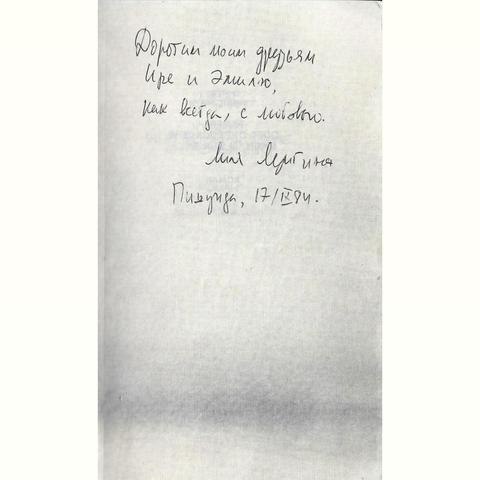 Дорогим моим друзьям
Ире и Эмилю,
как всегда, с любовью.
Лия
Пицунда, 17/IX 84.